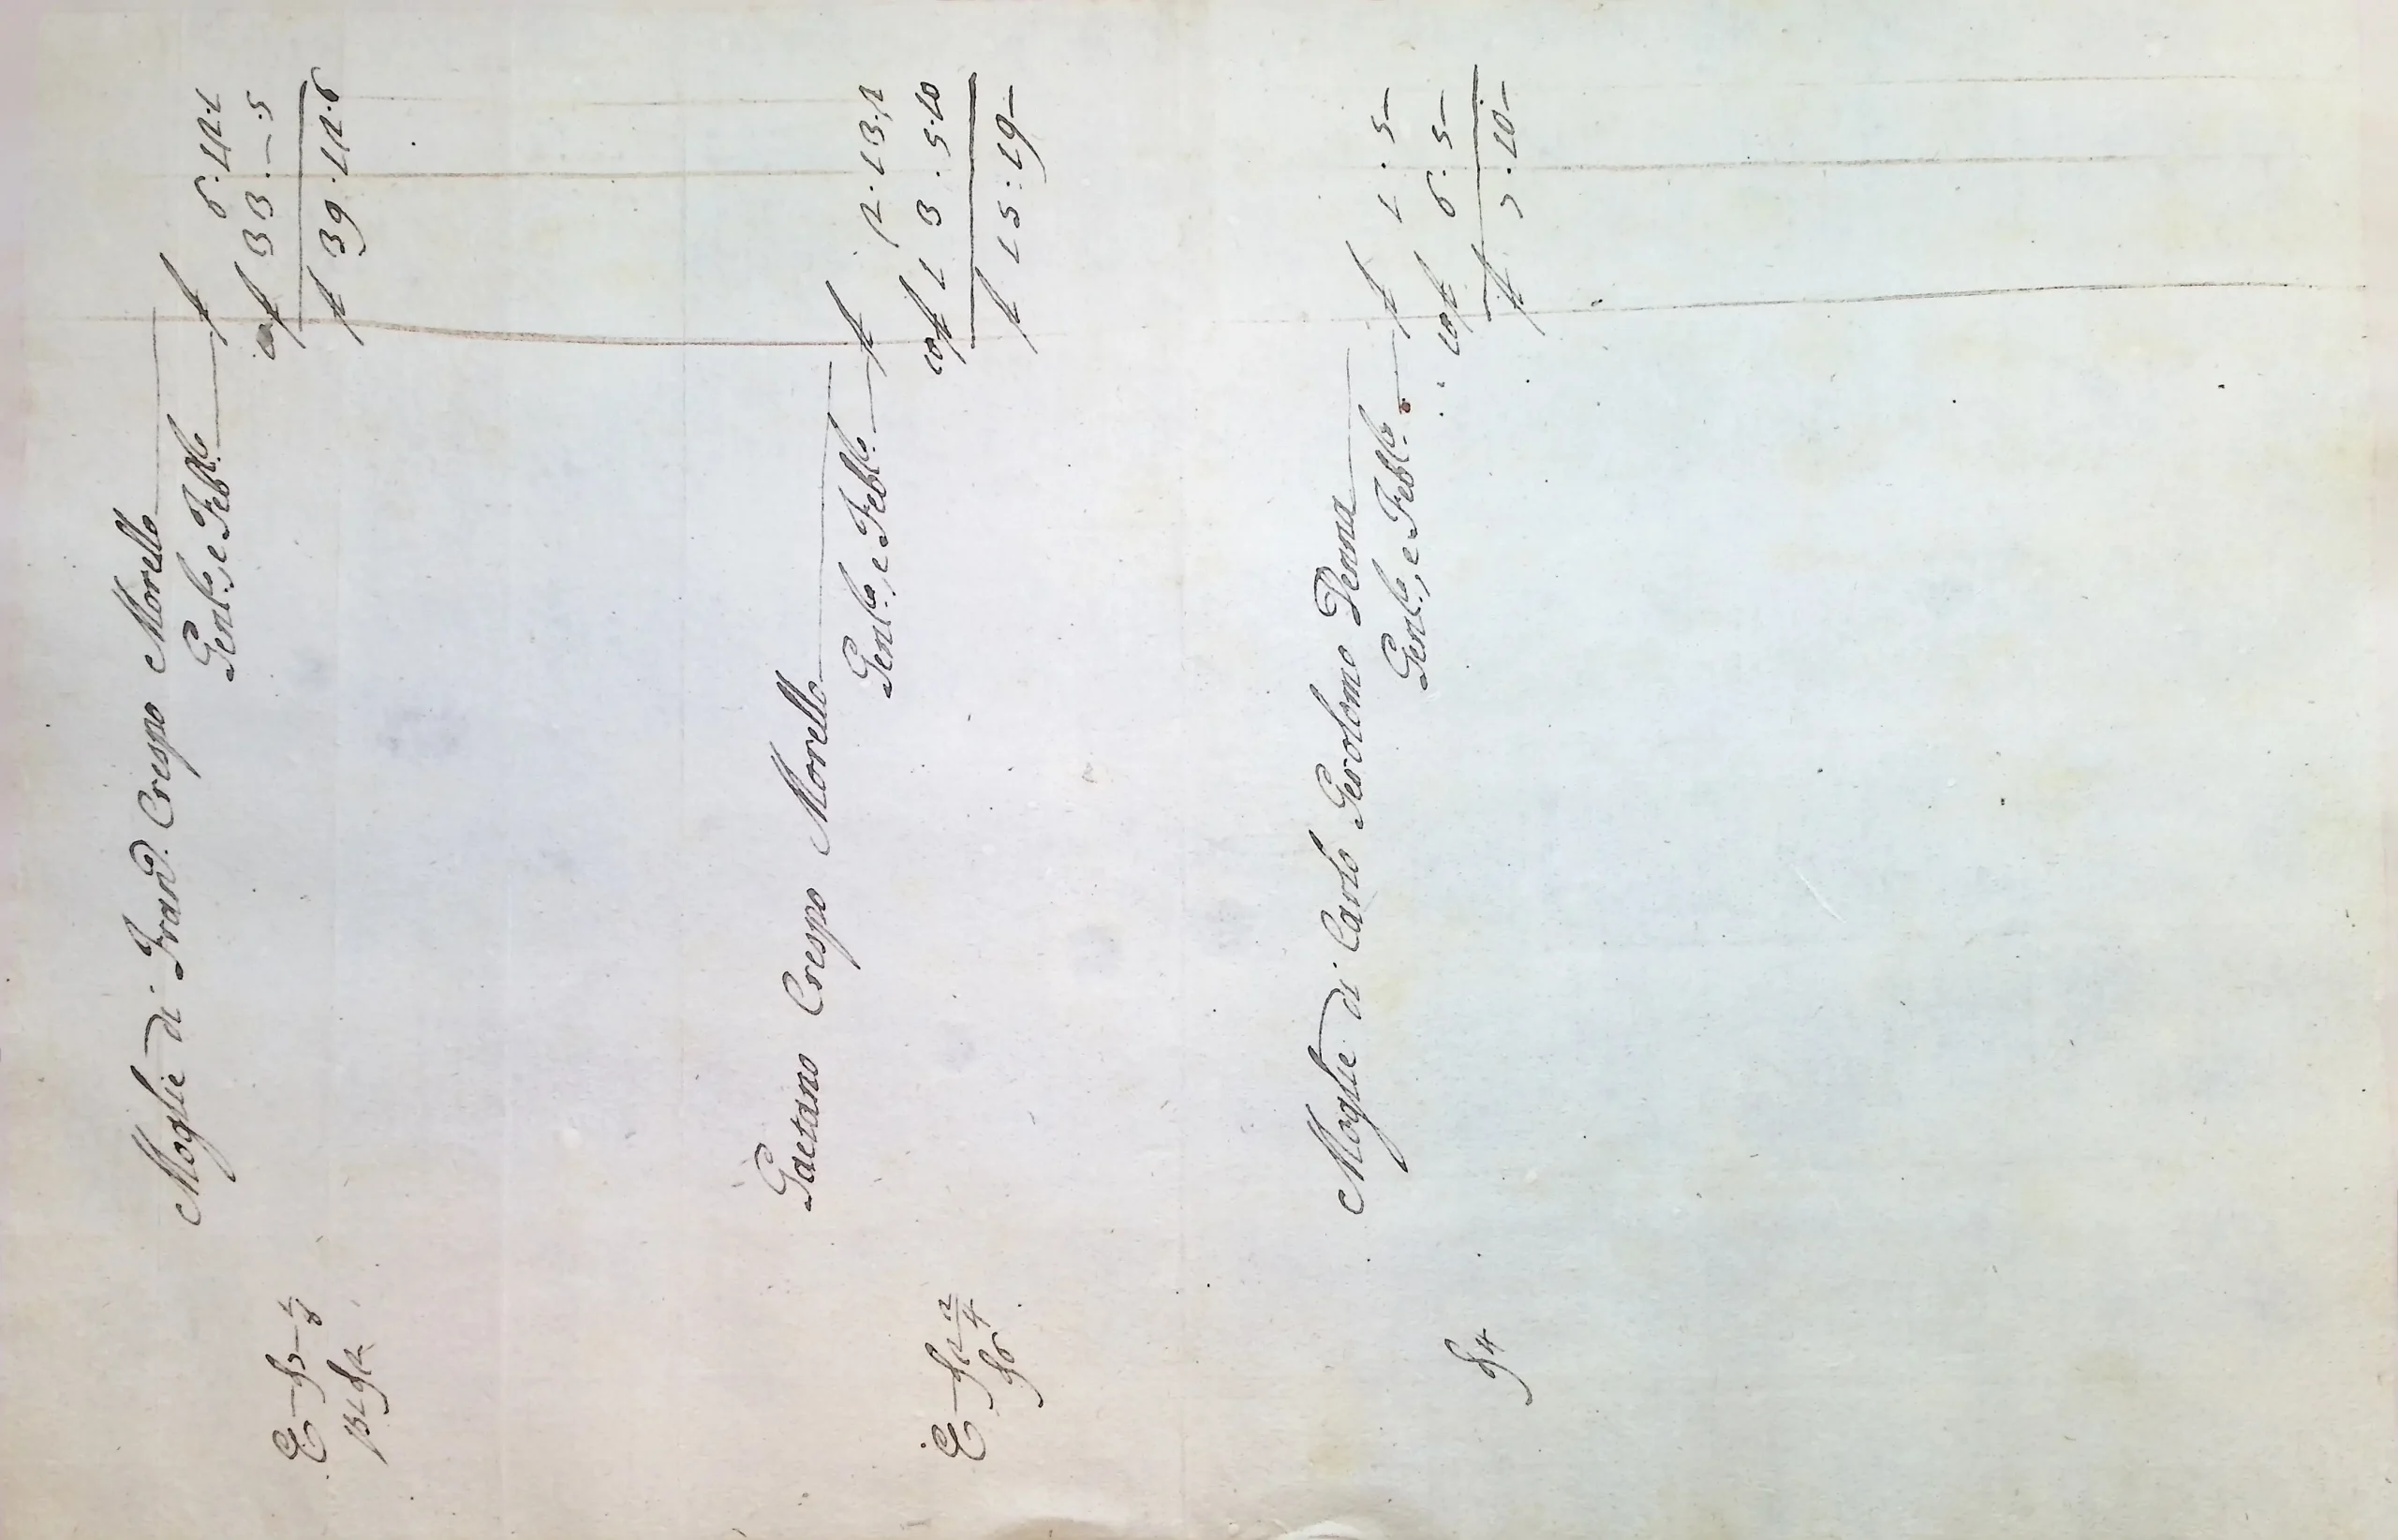 Moglie di Frand. Crespo Morello
Genl.o, e Febb.o £ 6.12.1
co£ 33.—.5
£ 39.12.6
Gaetano Crespo Morello
Genl.o, e Febb.o £ 2.13.2
co£ 13.5.10
£ 15:19—
Moglie di Carlo Gerolomo Penna
Genl.o, e Febb.o £ 1.5—
co£ 6.5—
£ 7.10—